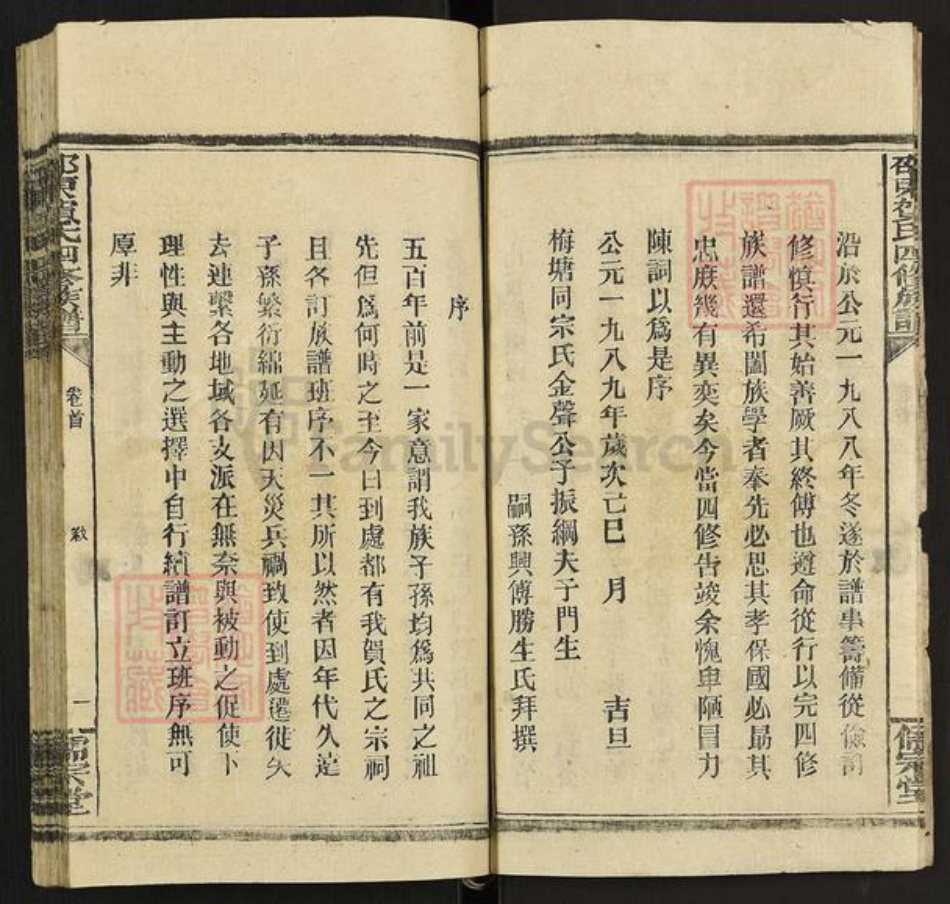 邵東賀氏四修族譜
儒宗堂
沿於公元一九八八年冬遂於譜事籌備從儉詞
修慎行其始善厥其終傅也遵命從行以完四修
族譜還希闔族學者奉先必思其孝保國必勗其
忠庶幾有異奕矣今當四修告竣余愧卑陋冒力
陳詞以爲是序
公元一九八九年歲次己巳 月 吉旦
梅塘同宗氏金聲公子振綱夫子門生
嗣孫興傅勝生氏拜撰
序
五百年前是一家意謂我族子孫均爲共同之祖
先但爲何時之至今日到處都有我賀氏之宗祠
且各訂族譜班序不一其所以然者因年代久遠
子孫繁衍綿延有因天災兵禍致使到處遷徙失
去連繫各地域各支派在無奈與被動之促使下
理性與主動之選擇中自行續譜訂立班序無可
厚非
邵東賀氏四修族譜
卷首
敘
一
儒宗堂
FamilySearch